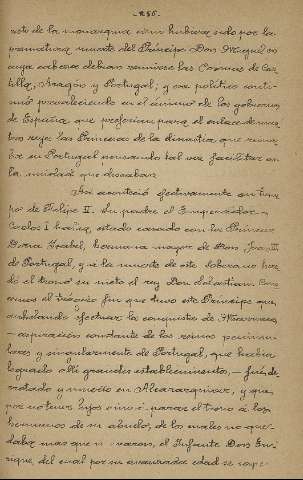 - 256 -
este de la monarquia como hubiera sido por la
prematura muerte del Príncipe Don Miguel en
cuya cabeza debian reunirse las Coronas de Cas-
tilla, Aragón y Portugal; y esa política conti-
nuó prevaleciendo en el ánimo de los gobiernos
de España, que preferían para el enlace de nues-
tros reyes las Princesas de la dinastía que reina-
ba en Portugal pensando tal vez facilitar así
la unidad que deseaban.
Así aconteció efectivamente en tiem-
pos de Felipe II. Su padre el Emperador
Carlos I había estado casado con la Princesa
Doña Isabel, hermana mayor de Don Juan III
de Portugal, y a la muerte de este soberano here-
dó el trono su nieto el rey Don Sebastian.
el trágico fin que tuvo este Príncipe que,
anhelando efectuar la conquista de Marruecos
- aspiración constante de los reinos peninsu-
lares y singularmente de Portugal, que había
logrado allí grandes establecimientos, - fué de-
rrotado y muerto en Alcazarquivir, y que,
por no tener hijos vino á parar el trono á los
hermanos de su abuelo, de los cuales no que-
daba mas que un varon, el Infante Don Enri-
que, del cual por su avanzada edad se